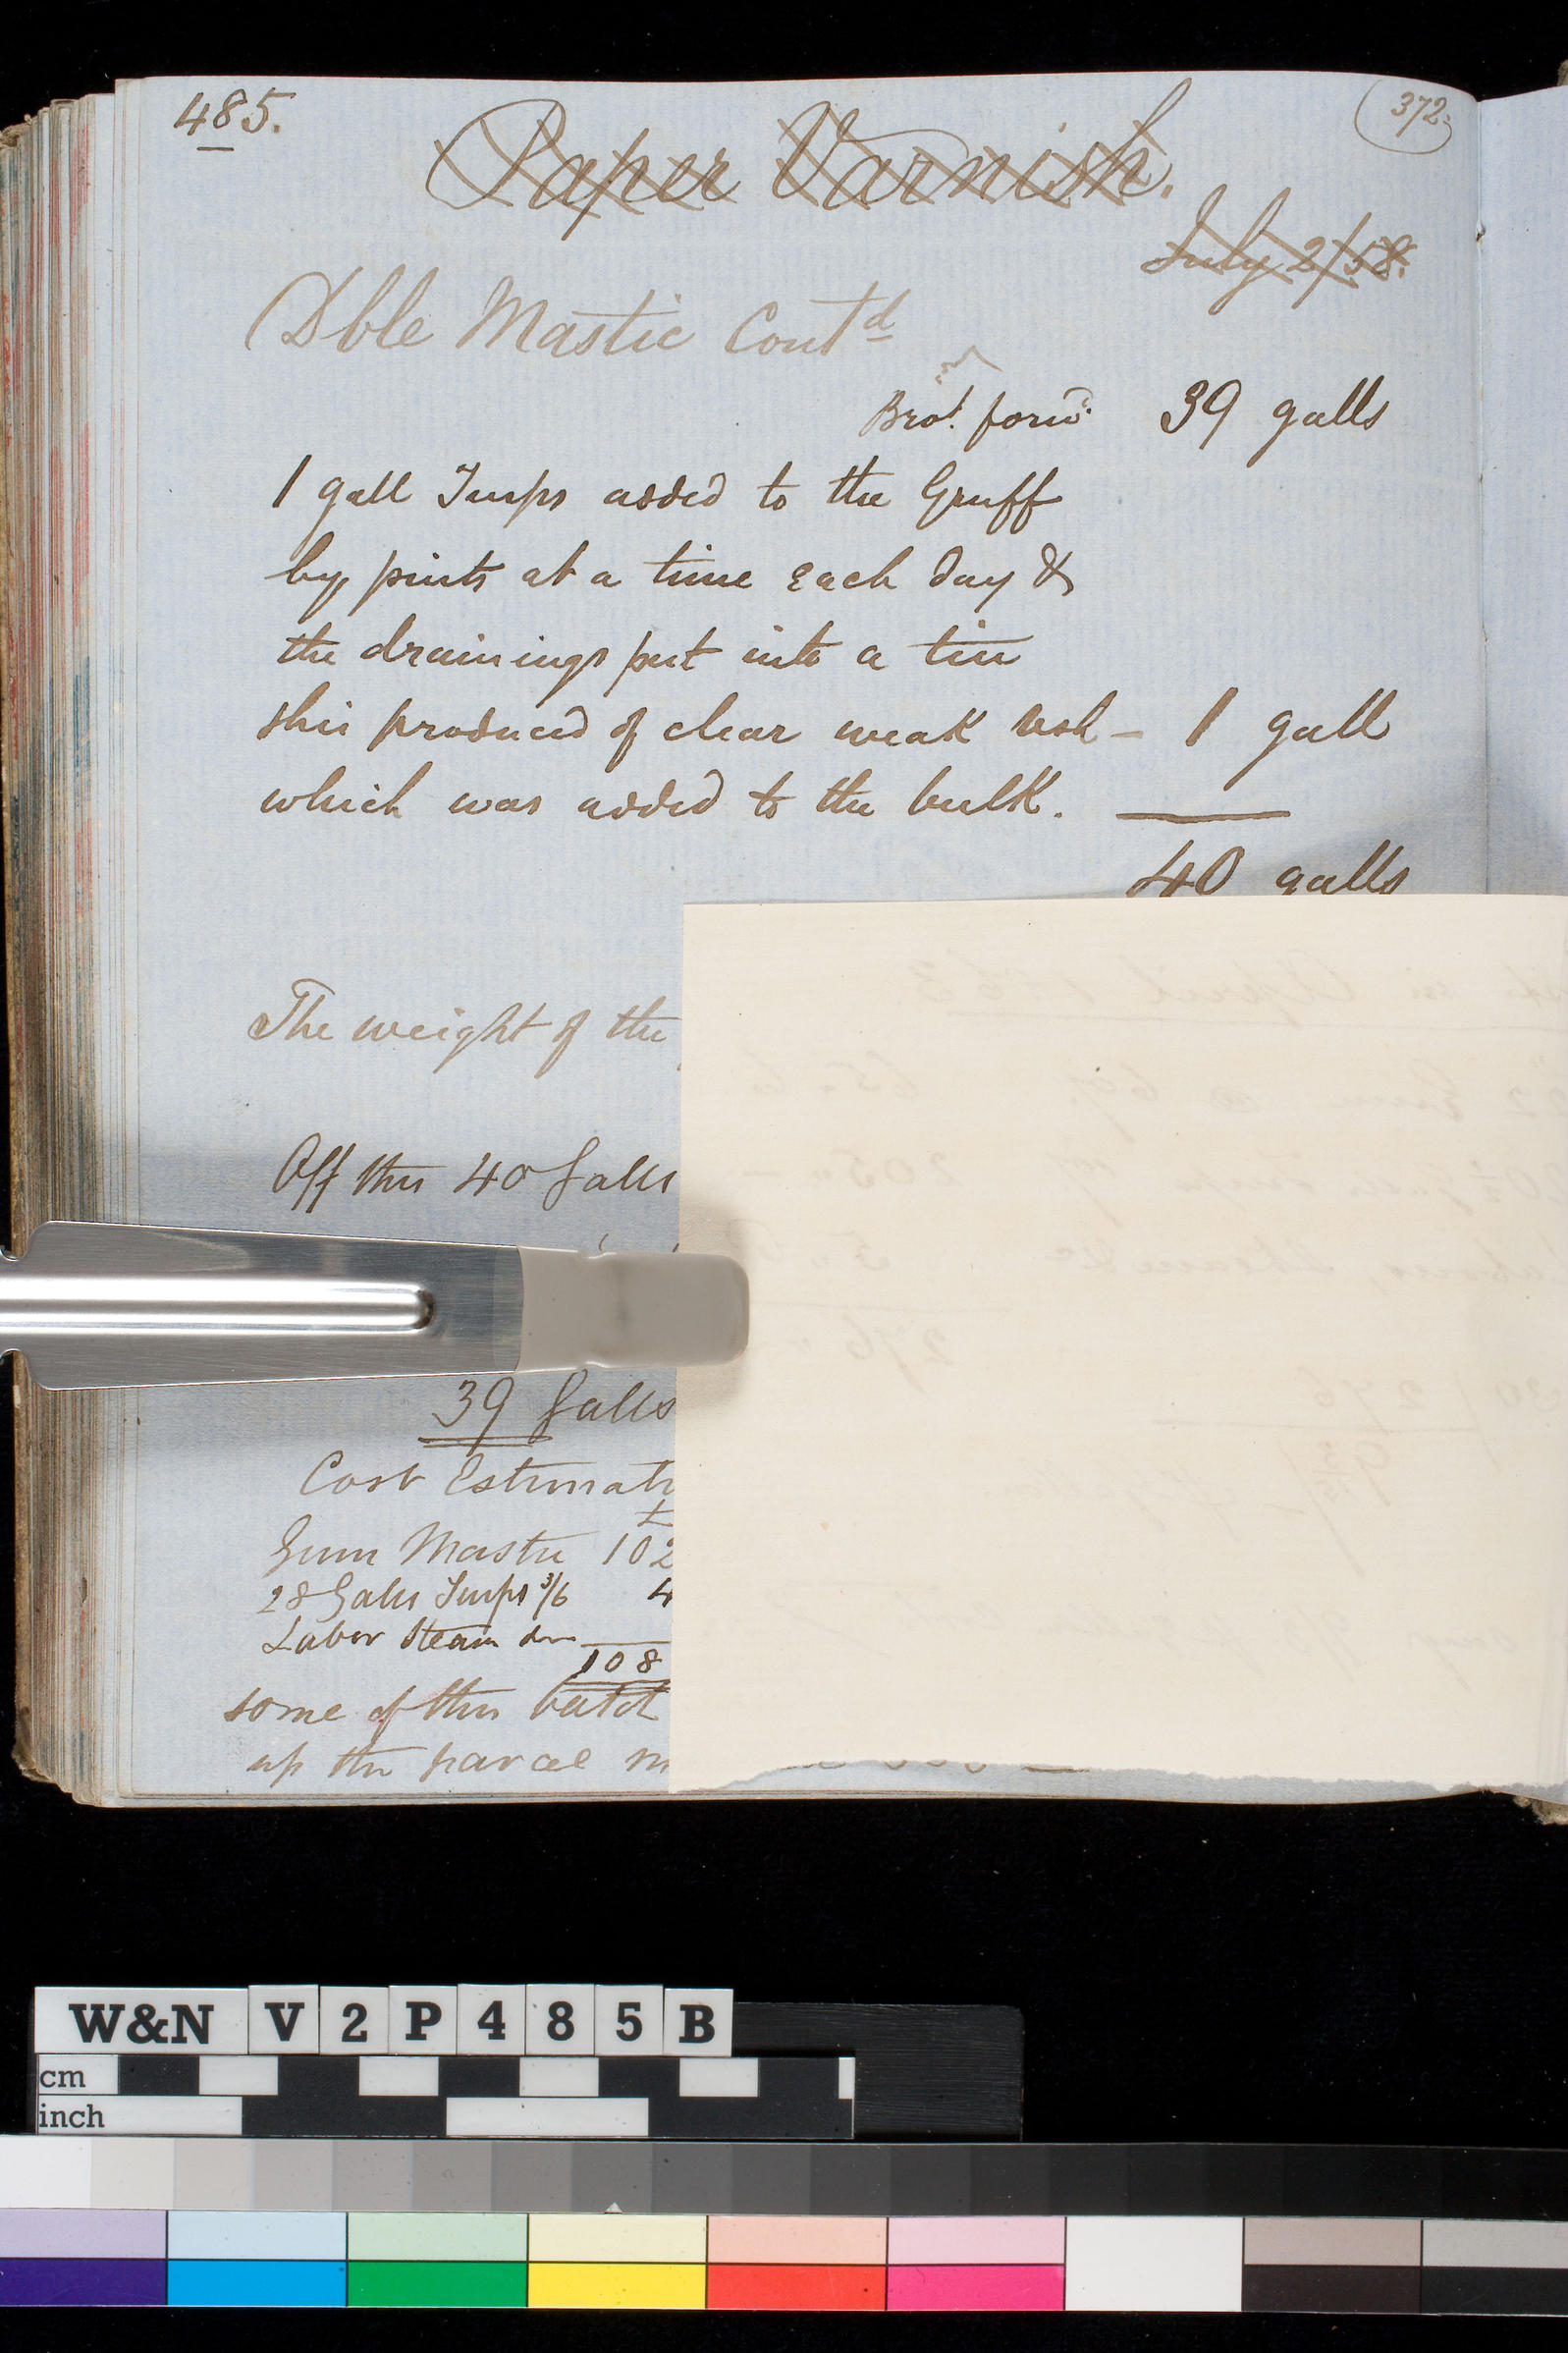 485.
372.
Paper Varnish.
July 2/58.
Dble Mastic Contd
Brot. forwd. 39 galls
1 gall Turps added to the Gruff
by pints at a time each day &
the drainings put into a tin
this produced of clear weak Vsh - 1 gall
which was added to the bulk.
40 galls
The weight of the
Off this 40 Galls
39 Galls
Cost Estimate
£
Gum Mastic 102
28 Galls Turps 3/6 4
Labor Steam
108
some of this batch
up the parcel
W&N V2P485B
cm
inch